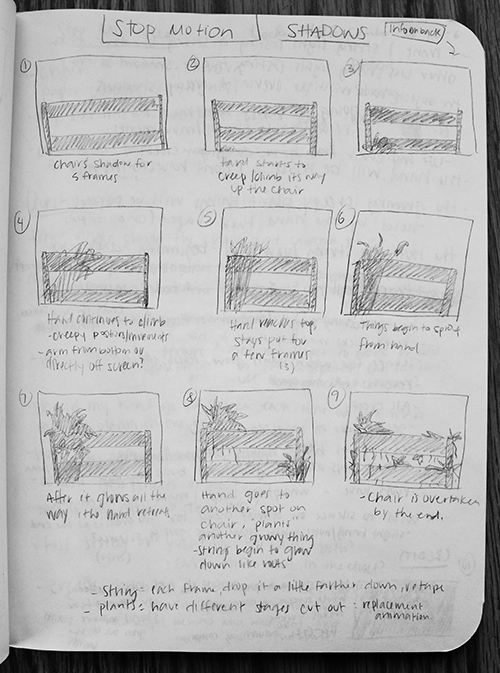 STOP MOTION SHADOWS
info on back
1
2
3
Chairs shadow for
5 frames
Hand starts to
creep/climb its way
up the chair
4
5
6
Hand continues to climb
- creepy positions/movements
- arm from bottom or
directly off screen?
Hand reaches top,
stays put for
a few frames
(3)
Things begin to sprout
from hand
7
8
9
After it grows all the
way the hand retreats
Hand goes to
another spot on
chair, "plants"
another growy thing
- string begin to grow
down like roots
- Chair is overtaken
by the end.
- string - each frame, drop it a little farther down, retape
- plants: have different stages cut out - replacement
animation.